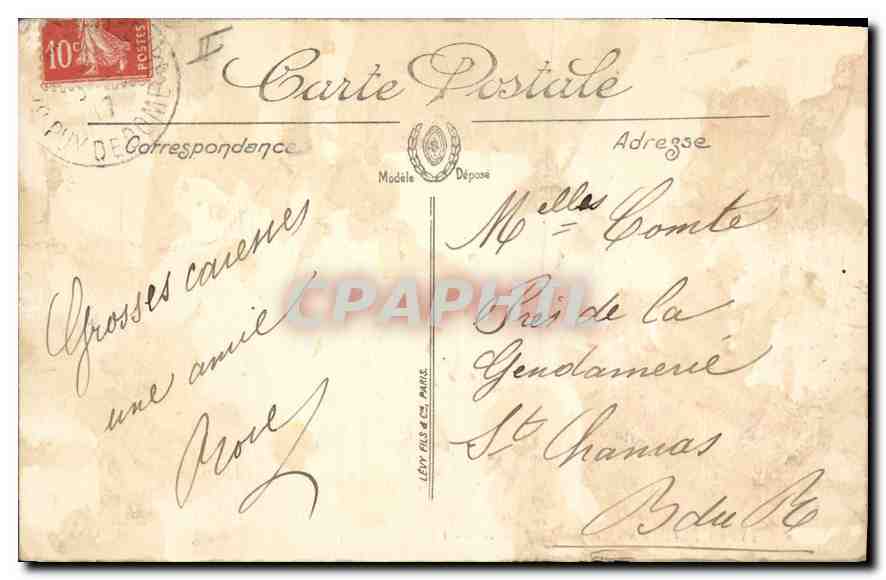 10c POSTES
II
PUY DE DOME
Carte Postale
Correspondance
Adresse
Modèle Déposé
Grosses caresses
une amie
LÉVY FILS & Cie, PARIS.
Melles Comte
Près de la
Gendamerie
St Chamas
B du R
CPAPHIL